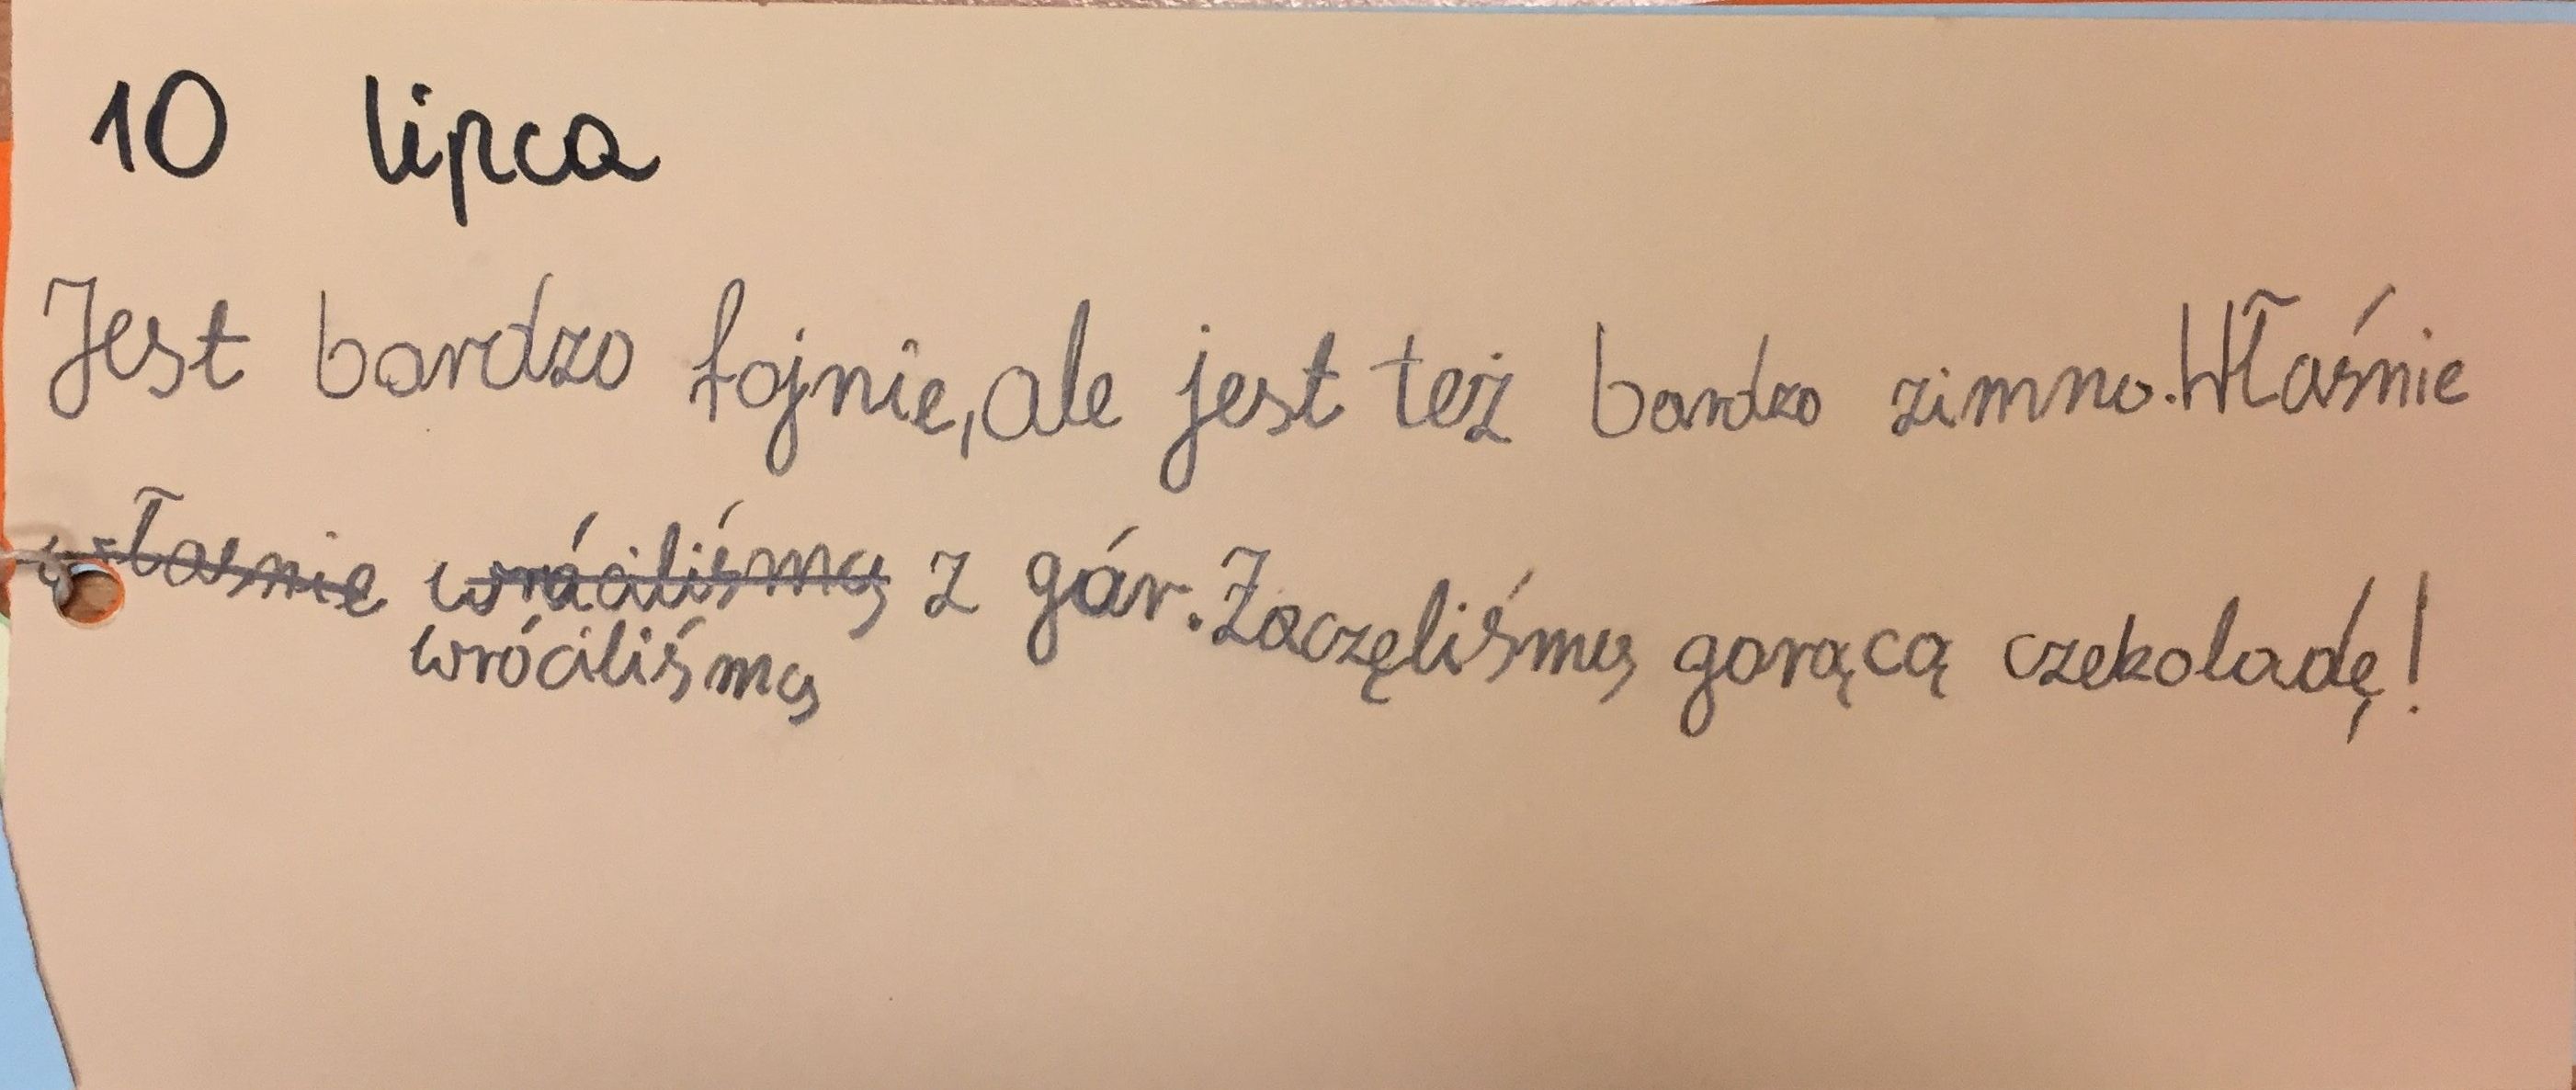 10 lipca
Jest bardzo fajnie, ale jest też bardzo zimno. Właśnie
właśnie wróciliśmy z gór. Zaczęliśmy gorącą czekoladę!
wróciliśmy